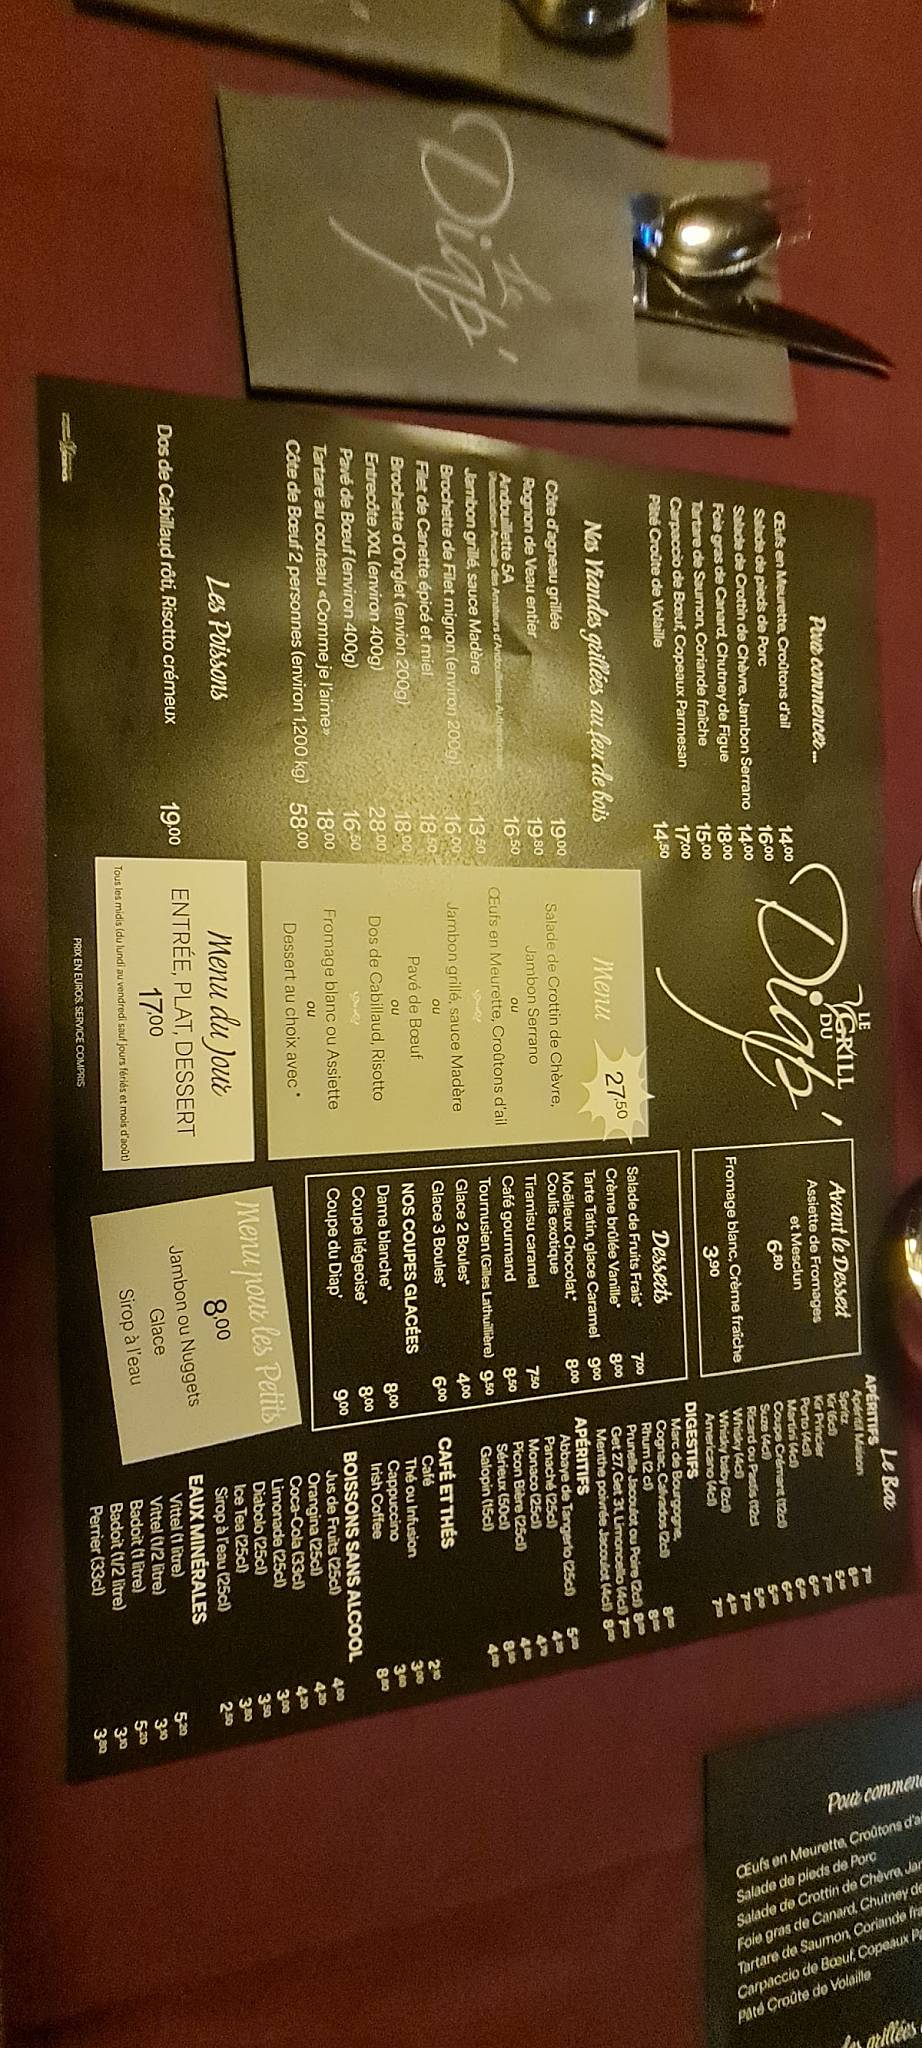 Le Diap'
Pour commencer...
Œufs en Meurette, Croûtons d'ail 14,00
Salade de pieds de Porc 16,00
Salade de Crottin de Chèvre, Jambon Serrano 14,00
Foie gras de Canard, Chutney de Figue 18,00
Tartare de Saumon, Coriande fraîche 15,00
Carpaccio de Bœuf, Copeaux Parmesan 17,00
Pâté Croûte de Volaille 14,50
Nos Viandes grillées au feu de bois
Côte d'agneau grillée 19,00
Rognon de Veau entier 19,80
Andouillette 5A 16,50
Jambon grillé, sauce Madère 13,50
Brochette de Filet mignon (environ 200g) 16,00
Filet de Canette épicé et miel 18,50
Brochette d'Onglet (envion 200g) 18,00
Entrecôte XXL (environ 400g) 28,00
Pavé de Bœuf (environ 400g) 16,50
Tartare au couteau «Comme je l'aime» 18,00
Côte de Bœuf 2 personnes (environ 1,200 kg) 58,00
Les Poissons
Dos de Cabillaud rôti, Risotto crémeux 19,00
LE
GRILL
DU
Diap'
Menu 27,50
Salade de Crottin de Chèvre,
Jambon Serrano
ou
Œufs en Meurette, Croûtons d'ail
Jambon grillé, sauce Madère
ou
Pavé de Bœuf
ou
Dos de Cabillaud, Risotto
Fromage blanc ou Assiette
ou
Dessert au choix avec *
Menu du Jour
ENTRÉE, PLAT, DESSERT
17,00
Tous les midis (du lundi au vendredi sauf jours fériés et mois d'août)
PRIX EN EUROS. SERVICE COMPRIS
Avant le Dessert
Assiette de Fromages
et Mesclun
6,80
Fromage blanc, Crème fraîche
3,90
Desserts
Salade de Fruits Frais* 7,00
Crème brûlée Vanille* 8,00
Tarte Tatin, glace Caramel 9,00
Moëlleux Chocolat,*
Coulis exotique 8,00
Tiramisu caramel 7,50
Café gourmand 8,50
Tournusien (Gilles Lathuillière) 9,50
Glace 2 Boules* 4,00
Glace 3 Boules* 6,00
NOS COUPES GLACÉES
Dame blanche* 8,00
Coupe liégeoise* 8,00
Coupe du Diap' 9,00
Menu pour les Petits
8,00
Jambon ou Nuggets
Glace
Sirop à l'eau
Le Bar
APÉRITIFS
Apéritif Maison
Spritz
Kir (6cl)
Kir Princier
Porto (4cl)
Martini (4cl)
Coupe Crémant (12cl)
Suze (4cl)
Ricard ou Pastis (2cl)
Whisky (4cl)
Whisky baby (2cl)
Americano (4cl)
DIGESTIFS
Marc de Bourgogne,
Cognac, Calvados (2cl)
Rhum (2 cl)
Prunelle Jacoulot ou Poire (2cl)
Get 27, Get 31, Limoncello (4cl)
Menthe poivrée Jacoulot (4cl)
APÉRITIFS
Abbaye de Tangerlo (25cl)
Panaché (25cl)
Monaco (25cl)
Picon Bière (25cl)
Sérieux (50cl)
Galopin (15cl)
CAFÉ ET THÉS
Café 2,10
Thé ou Infusion 3,00
Cappuccino
Irish Coffee
BOISSONS SANS ALCOOL
Jus de Fruits (25cl) 4,00
Orangina (25cl) 4,20
Coca-Cola (33cl) 4,20
Limonade (25cl) 3,00
Diabolo (25cl) 3,50
Ice Tea (25cl) 3,80
Sirop à l'eau (25cl) 2,50
EAUX MINÉRALES
Vittel (1 litre) 5,20
Vittel (1/2 litre) 3,10
Badoit (1 litre) 5,20
Badoit (1/2 litre) 3,10
Perrier (33cl) 3,80
Pour commen
Œufs en Meurette, Croûtons d'a
Salade de pieds de Porc
Salade de Crottin de Chèvre, Jam
Foie gras de Canard, Chutney de
Tartare de Saumon, Coriande fra
Carpaccio de Bœuf, Copeaux Pa
Pâté Croûte de Volaille
grillées